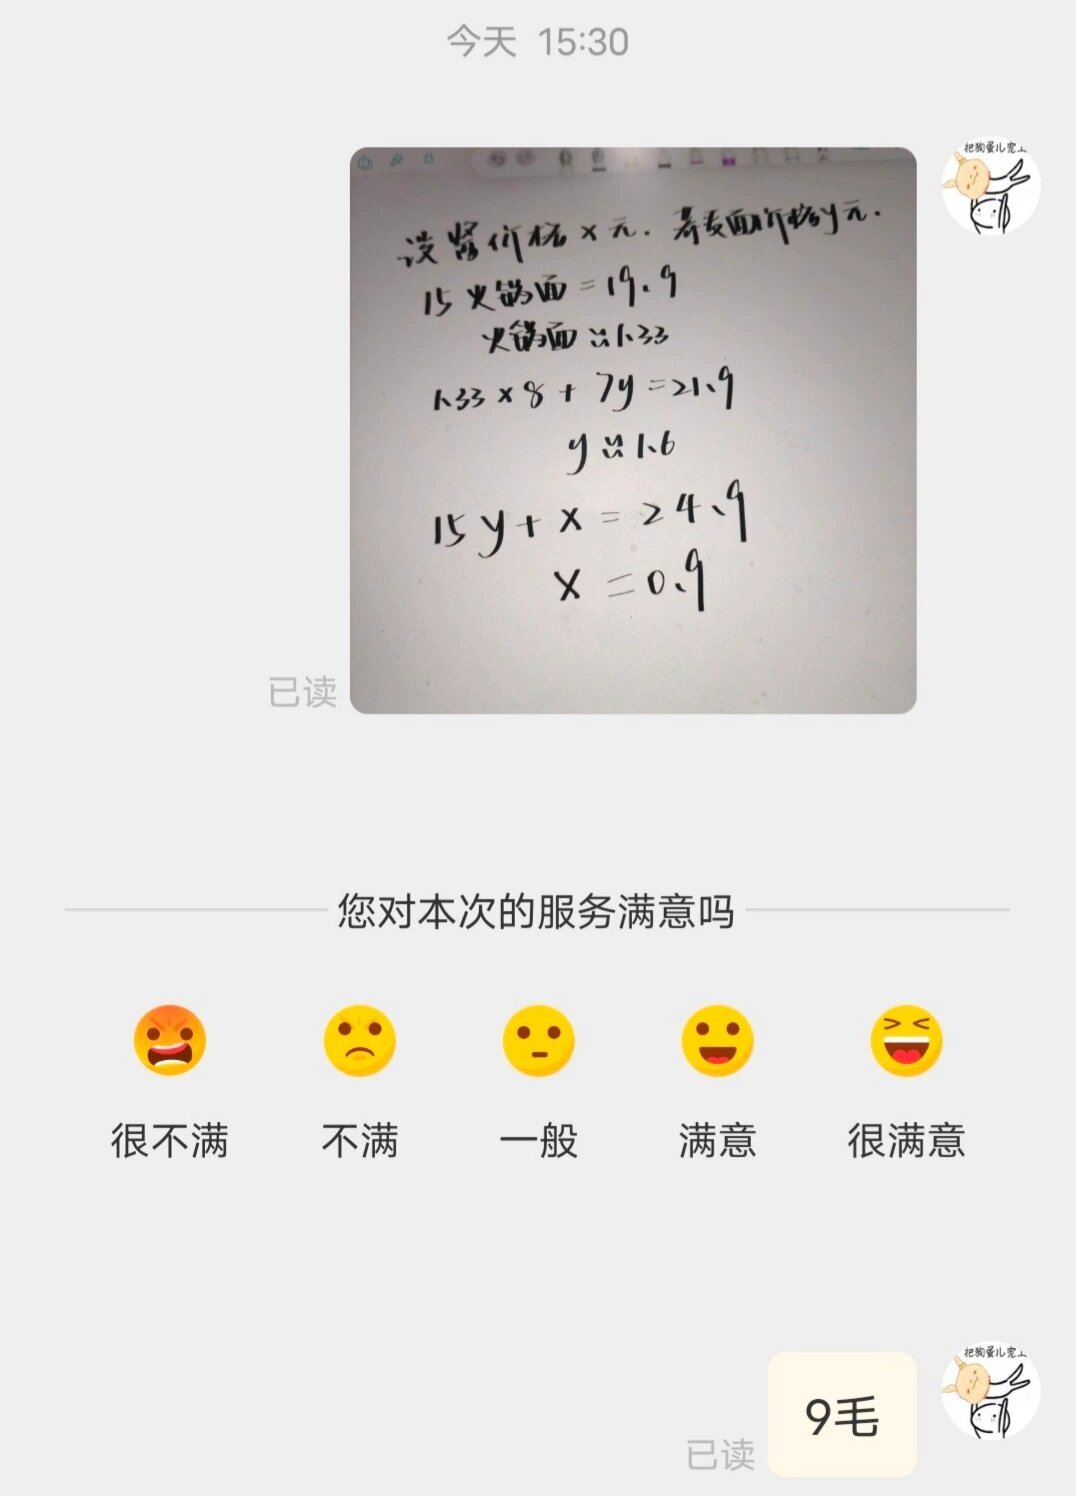 今天 15:30
把狗蛋儿宠上
设酱价格x元.荞麦面价格y元.
15火锅面=19.9
火锅面≈1.33
1.33×8+7y=21.9
y≈1.6
15y+x=24.9
x=0.9
已读
您对本次的服务满意吗
很不满 不满 一般 满意 很满意
把狗蛋儿宠上
9毛
已读